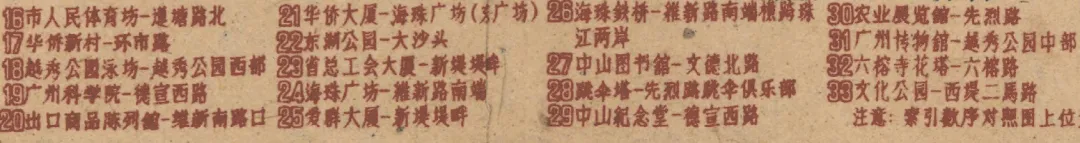 16市人民体育坊-連塘路北
17华侨新村-环市路
18越秀公園泳坊-越秀公园西部
19广州科学院-德宣西路
20出口商品陈列館-維新南路口
21华侨大厦-海珠广坊(东广坊)
22东湖公园-大沙头
23省总工会大厦-新堤堤畔
24海珠广坊-維新路南端
25爱群大厦-新堤堤畔
26海珠鉄桥-維新路南端橫跨珠
江两岸
27中山图书館-文德北路
28跳伞塔-先烈路跳伞俱乐部
29中山紀念堂-德宣西路
30农业展览館-先烈路
31广州博物館-越秀公园中部
32六榕寺花塔-六榕路
33文化公园-西堤二馬路
注意:索引数序对照图上位